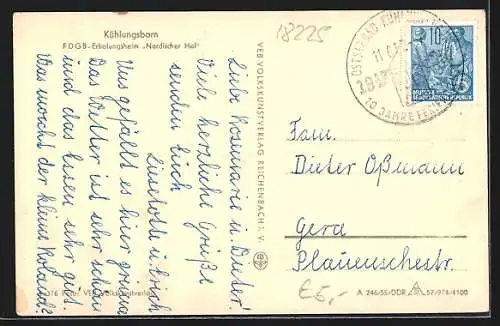 Kühlungsborn
FDGB-Erholungsheim „Nordischer Hof"
18225
Liebe Rosemarie u. Dieter!
Viele herzliche Grüße
senden Euch
Liselott u. Erich
Uns gefällt es hier prima
Das Wetter ist sehr schön
und das Essen sehr gut.
Was macht der kleine Roland?
VEB VOLKSKUNSTVERLAG REICHENBACH I. V.
OSTSEEBAD KÜHLUNGSBORN
11.6.
10 JAHRE
10
DEUTSCHE
DEMOKRATISCHE REPUBLIK
Fam.
Dieter Oßmann
Gera
Plauenschestr.
€5,-
A 246/55/DDR 57/974/4100